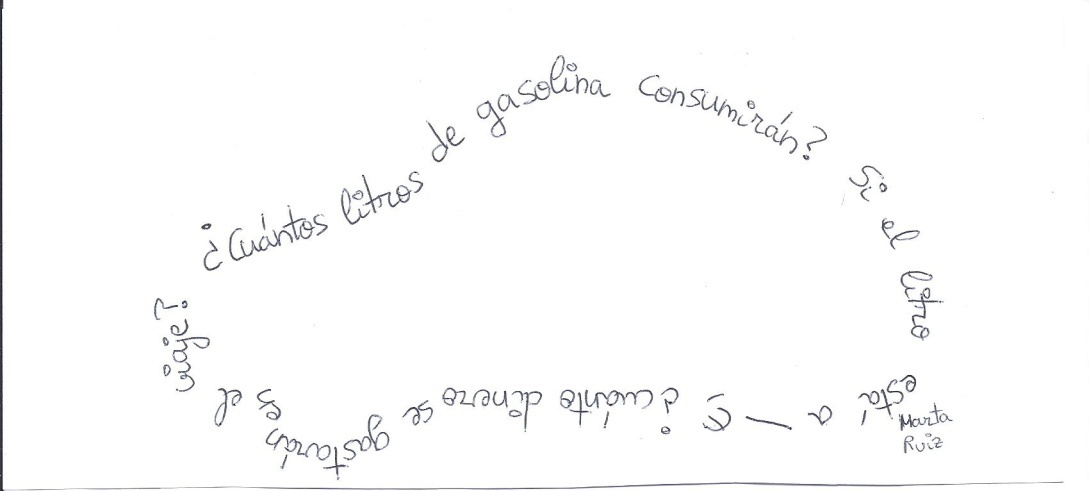 ¿Cuántos litros de gasolina consumirán? Si el litro está a — € ¿cuánto dinero se gastarán en el viaje?
Marta
Ruiz